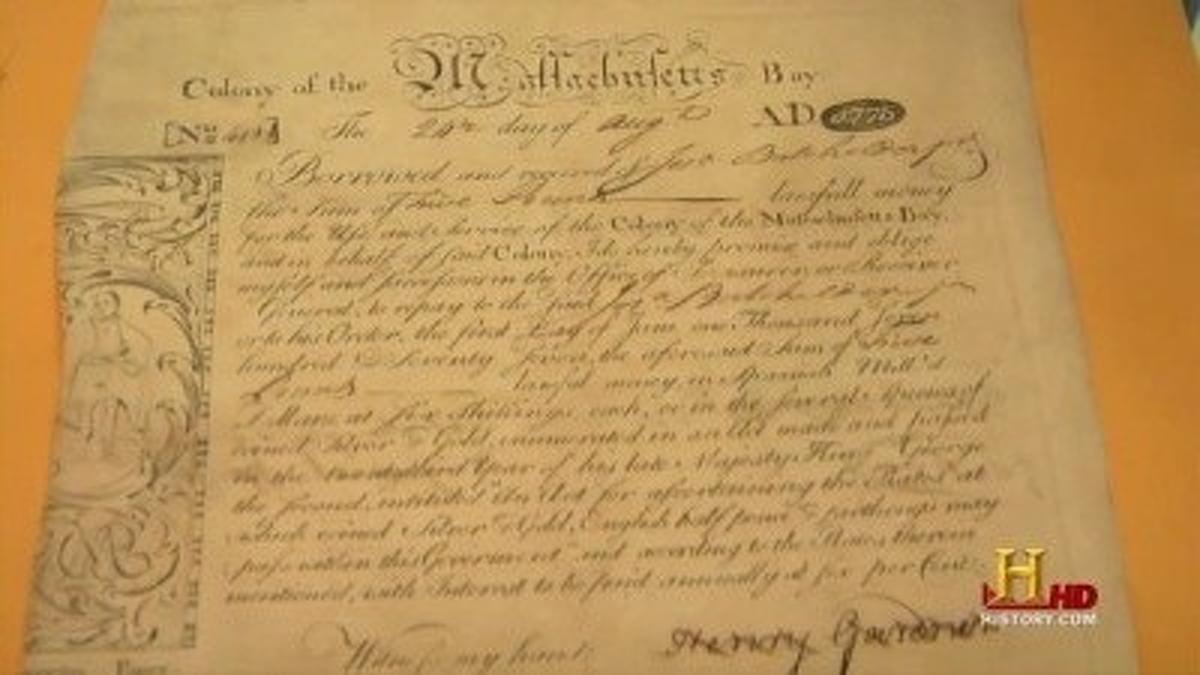 Colony of the Massachusetts Bay
No The 24th day of Aug AD 1776
Borrowed and received of
the Sum of Five lawfull money
for the Use and Service of the Colony of the Massachusetts Bay,
and in behalf of said Colony, I do hereby promise and oblige
myself and successors in the Office of Treasurer, or Receiver
General, to repay to the said
or to his Order, the first Day of June one Thousand Seven
hundred & Seventy Seven, the aforesaid Sum of Five
lawful money, in Spanish Mill'd
at six Shillings each, or in the several Species of
coined Silver & Gold, enumerated in an Act made and passed
in the Year of his late Majesty King George
the second, entitled "An Act for ascertaining the Rates at
which coined Silver & Gold, English half pence & farthings may
pass within this Government" and according to the Rates therein
mentioned, with Interest to be paid annually at six per Cent.
Witness my hand,
Henry Gardner
H HD
HISTORY.COM